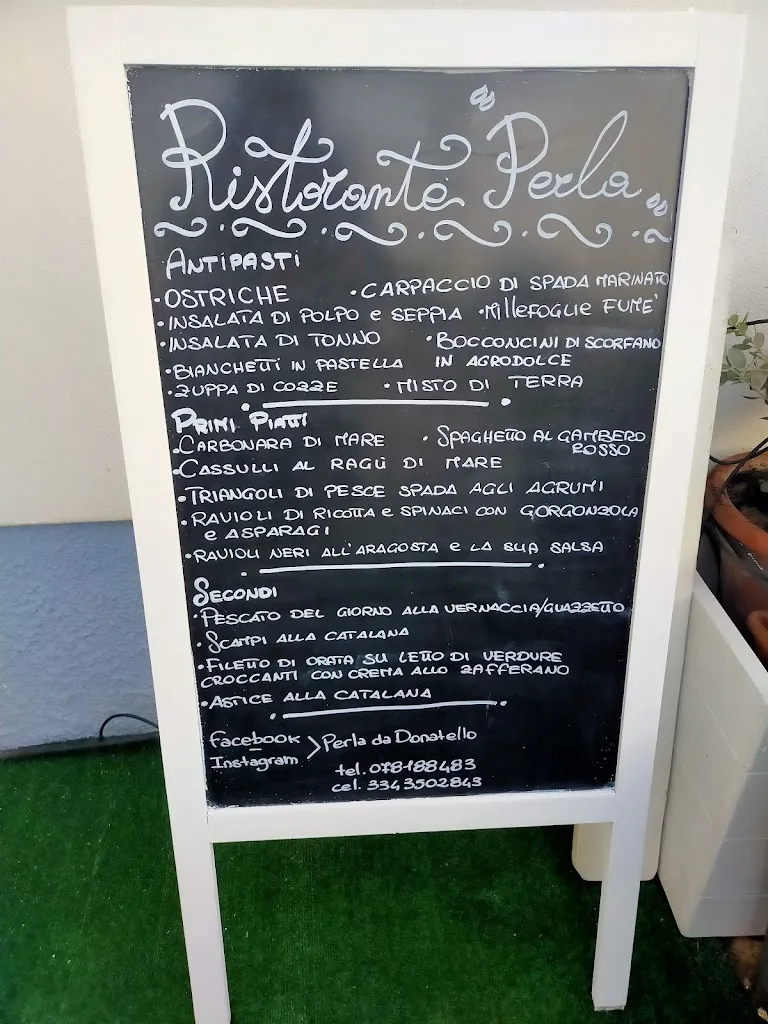 Ristorante Perla
ANTIPASTI
•OSTRICHE •CARPACCIO DI SPADA MARINATO
•INSALATA DI POLPO e SEPPIA •Millefoglie FUMÈ
•INSALATA DI TONNO •BOCCONCINI DI SCORFANO
IN AGRODOLCE
•BIANCHETTI IN PASTELLA
•ZUPPA DI COZZE •MISTO DI TERRA
PRIMI PIATTI
•CARBONARA DI MARE •SPAGHETTO AL GAMBERO
ROSSO
•CASSULLI AL RAGÙ DI MARE
•TRIANGOLI DI PESCE SPADA AGLI AGRUMI
•RAVIOLI DI RICOTTA e SPINACI CON GORGONZOLA
e ASPARAGI
•RAVIOLI NERI ALL'ARAGOSTA e LA SUA SALSA
SECONDI
•PESCATO DEL GIORNO ALLA VERNACCIA/GUAZZETTO
•SCAMPI ALLA CATALANA
•FILETTO DI ORATA SU LETTO DI VERDURE
CROCCANTI CON CREMA ALLO ZAFFERANO
•ASTICE ALLA CATALANA
facebook
Instagram > Perla da Donatello
tel. 078188483
cel. 3343502843